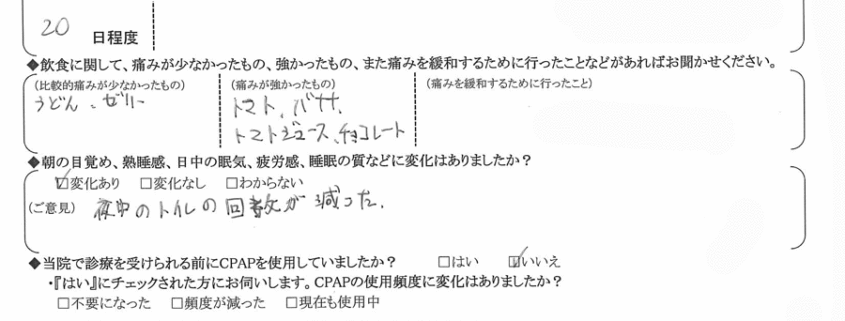 20 日程度
◆飲食に関して、痛みが少なかったもの、強かったもの、また痛みを緩和するために行ったことなどがあればお聞かせください。
(比較的痛みが少なかったもの) (痛みが強かったもの) (痛みを緩和するために行ったこと)
うどん、ゼリー トマト、バナナ、
トマトジュース、チョコレート
◆朝の目覚め、熟睡感、日中の眠気、疲労感、睡眠の質などに変化はありましたか?
☑変化あり □変化なし □わからない
(ご意見) 夜中のトイレの回数が減った。
◆当院で診療を受けられる前にCPAPを使用していましたか? □はい ☑いいえ
・『はい』にチェックされた方にお伺いします。CPAPの使用頻度に変化はありましたか?
□不要になった □頻度が減った □現在も使用中